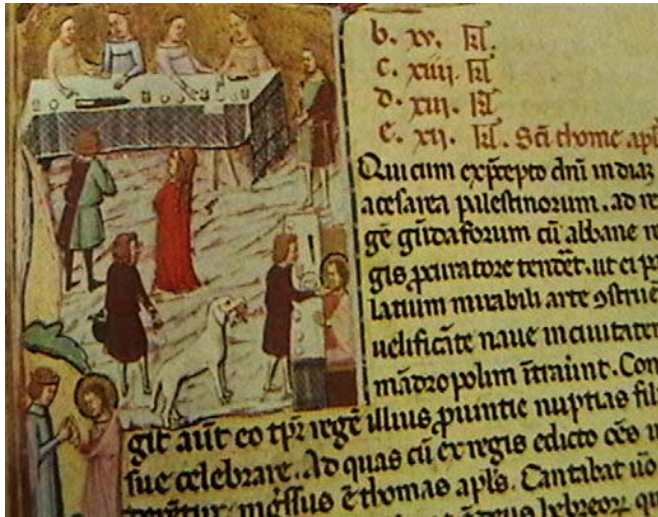 b. xv. kl
c. xiiii. kl
d. xiii. kl
e. xii. kl. Sci thome apl
Qui cum ex p̄cepto dn̄i in dia
acesarea palestinorum. ad re
gē gūdaforum cū abbane re
gis p̱curatore tendēt. ut ci pa
latium mirabili arte ꝯstrue
uelificāte naue in ciuitatem
mādropolim ītraūnt. Con
git aūt eo tp̄r regē illius p̱uintie nuptias fil
sue celebrare. Ad quas cū ex regis edicto oēs
mōssus ē thomas apl̄s. Cantibat
hebreoꝝ